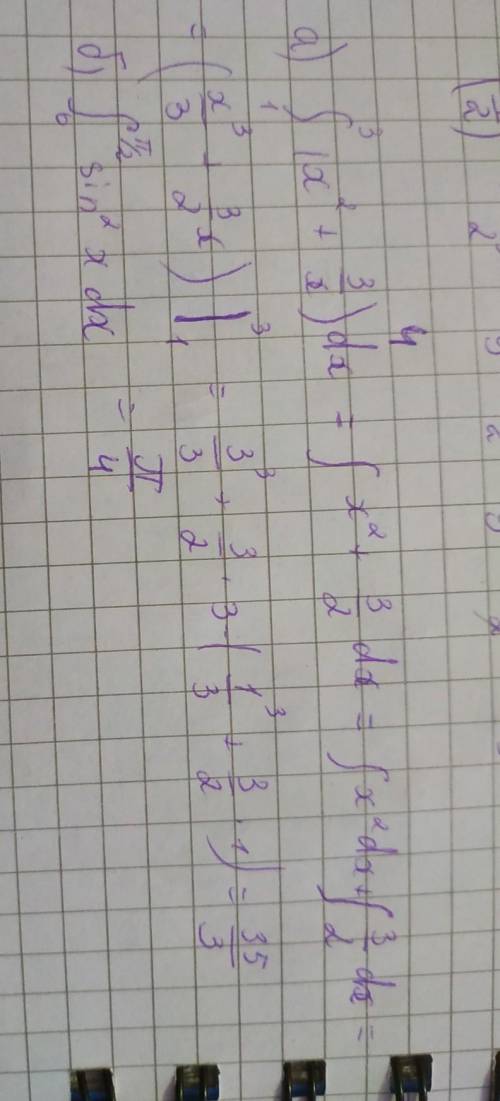 4
а) ∫₁³ (x² + 3/x) dx = ∫ x² + 3/2 dx = ∫ x² dx + ∫ 3/2 dx =
= (x³/3 + 3/2 x) |₁³ = 3³/3 + 3/2 · 3 - (1³/3 + 3/2 · 1) = 35/3
б) ∫₀^(π/2) sin² x dx = π/4